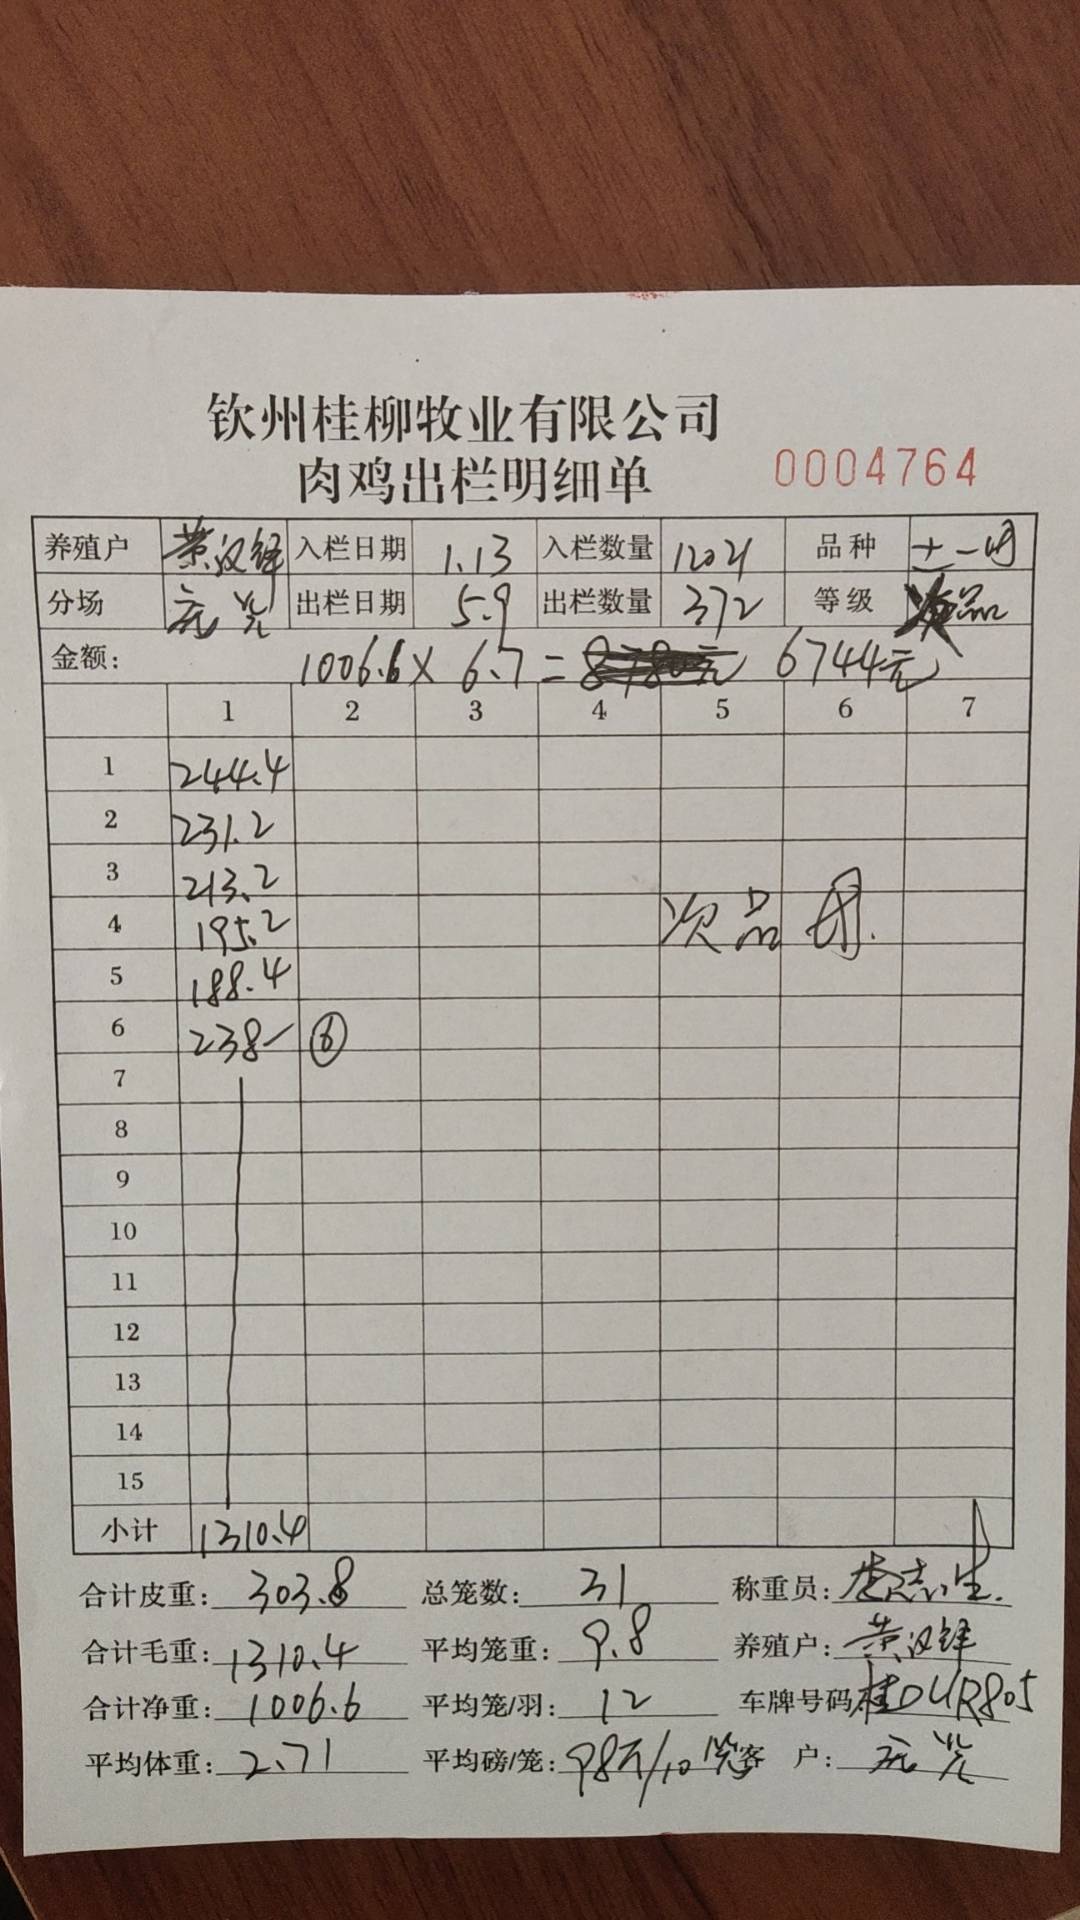 钦州桂柳牧业有限公司
肉鸡出栏明细单 0004764
养殖户 黄汉锋 入栏日期 1.13 入栏数量 1201 品种 土一
分场 出栏日期 5.9 出栏数量 372 等级 次品
金额: 1006.6×6.7= 6744元
1 2 3 4 5 6 7
1 244.4
2 231.2
3 213.2
4 195.2 次品
5 188.4
6 238 ⑥
7
8
9
10
11
12
13
14
15
小计 1310.4
合计皮重: 303.8 总笼数: 31 称重员:
合计毛重: 1310.4 平均笼重: 9.8 养殖户: 黄汉锋
合计净重: 1006.6 平均笼/羽: 12 车牌号码 桂DUR805
平均体重: 2.71 平均磅/笼: 98斤/10笼 客 户: